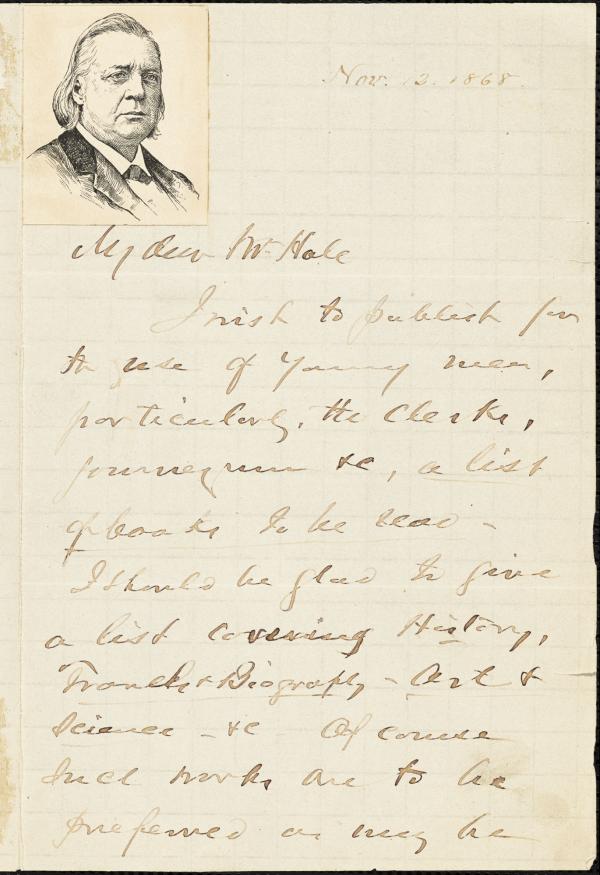 Nov. 12. 1868.
My dear Mr Hale
I wish to publish for
the use of young men,
particularly, the Clerks,
journeymen &c, a list
of books to be read -
I should be glad to give
a list covering History,
Travels & Biography - Art &
Science - &c Of course
such works are to be
preferred as may be